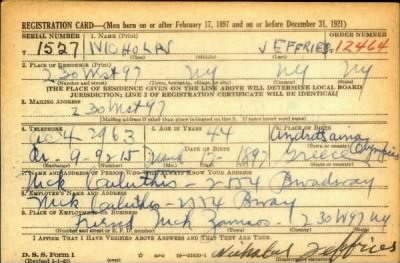 REGISTRATION CARD—(Men born on or after February 17, 1897 and on or before December 31, 1921)
SERIAL NUMBER 1. NAME (Print) ORDER NUMBER
T 1527 NICHOLAS JEFFRIES 12464
(First) (Middle) (Last)
2. PLACE OF RESIDENCE (Print)
230 W 47 NY NY NY
(Number and street) (Town, township, village, or city) (County) (State)
[THE PLACE OF RESIDENCE GIVEN ON THE LINE ABOVE WILL DETERMINE LOCAL BOARD
JURISDICTION; LINE 2 OF REGISTRATION CERTIFICATE WILL BE IDENTICAL]
3. MAILING ADDRESS
230 West 47
(Mailing address if other than place indicated on line 2. If same insert word same)
4. TELEPHONE 5. AGE IN YEARS 6. PLACE OF BIRTH
4-2963 44
DATE OF BIRTH
9-9215 1897 Greece
7. NAME AND ADDRESS OF PERSON WHO WILL ALWAYS KNOW YOUR ADDRESS
Nick Broadway
8. EMPLOYER'S NAME AND ADDRESS
Nick Bway
9. PLACE OF EMPLOYMENT OR BUSINESS
Nick 230 W 47 NY
(Number and street or R. F. D. number) (Town) (County) (State)
I AFFIRM THAT I HAVE VERIFIED ABOVE ANSWERS AND THAT THEY ARE TRUE.
D. S. S. Form 1
Nicholas Jeffries